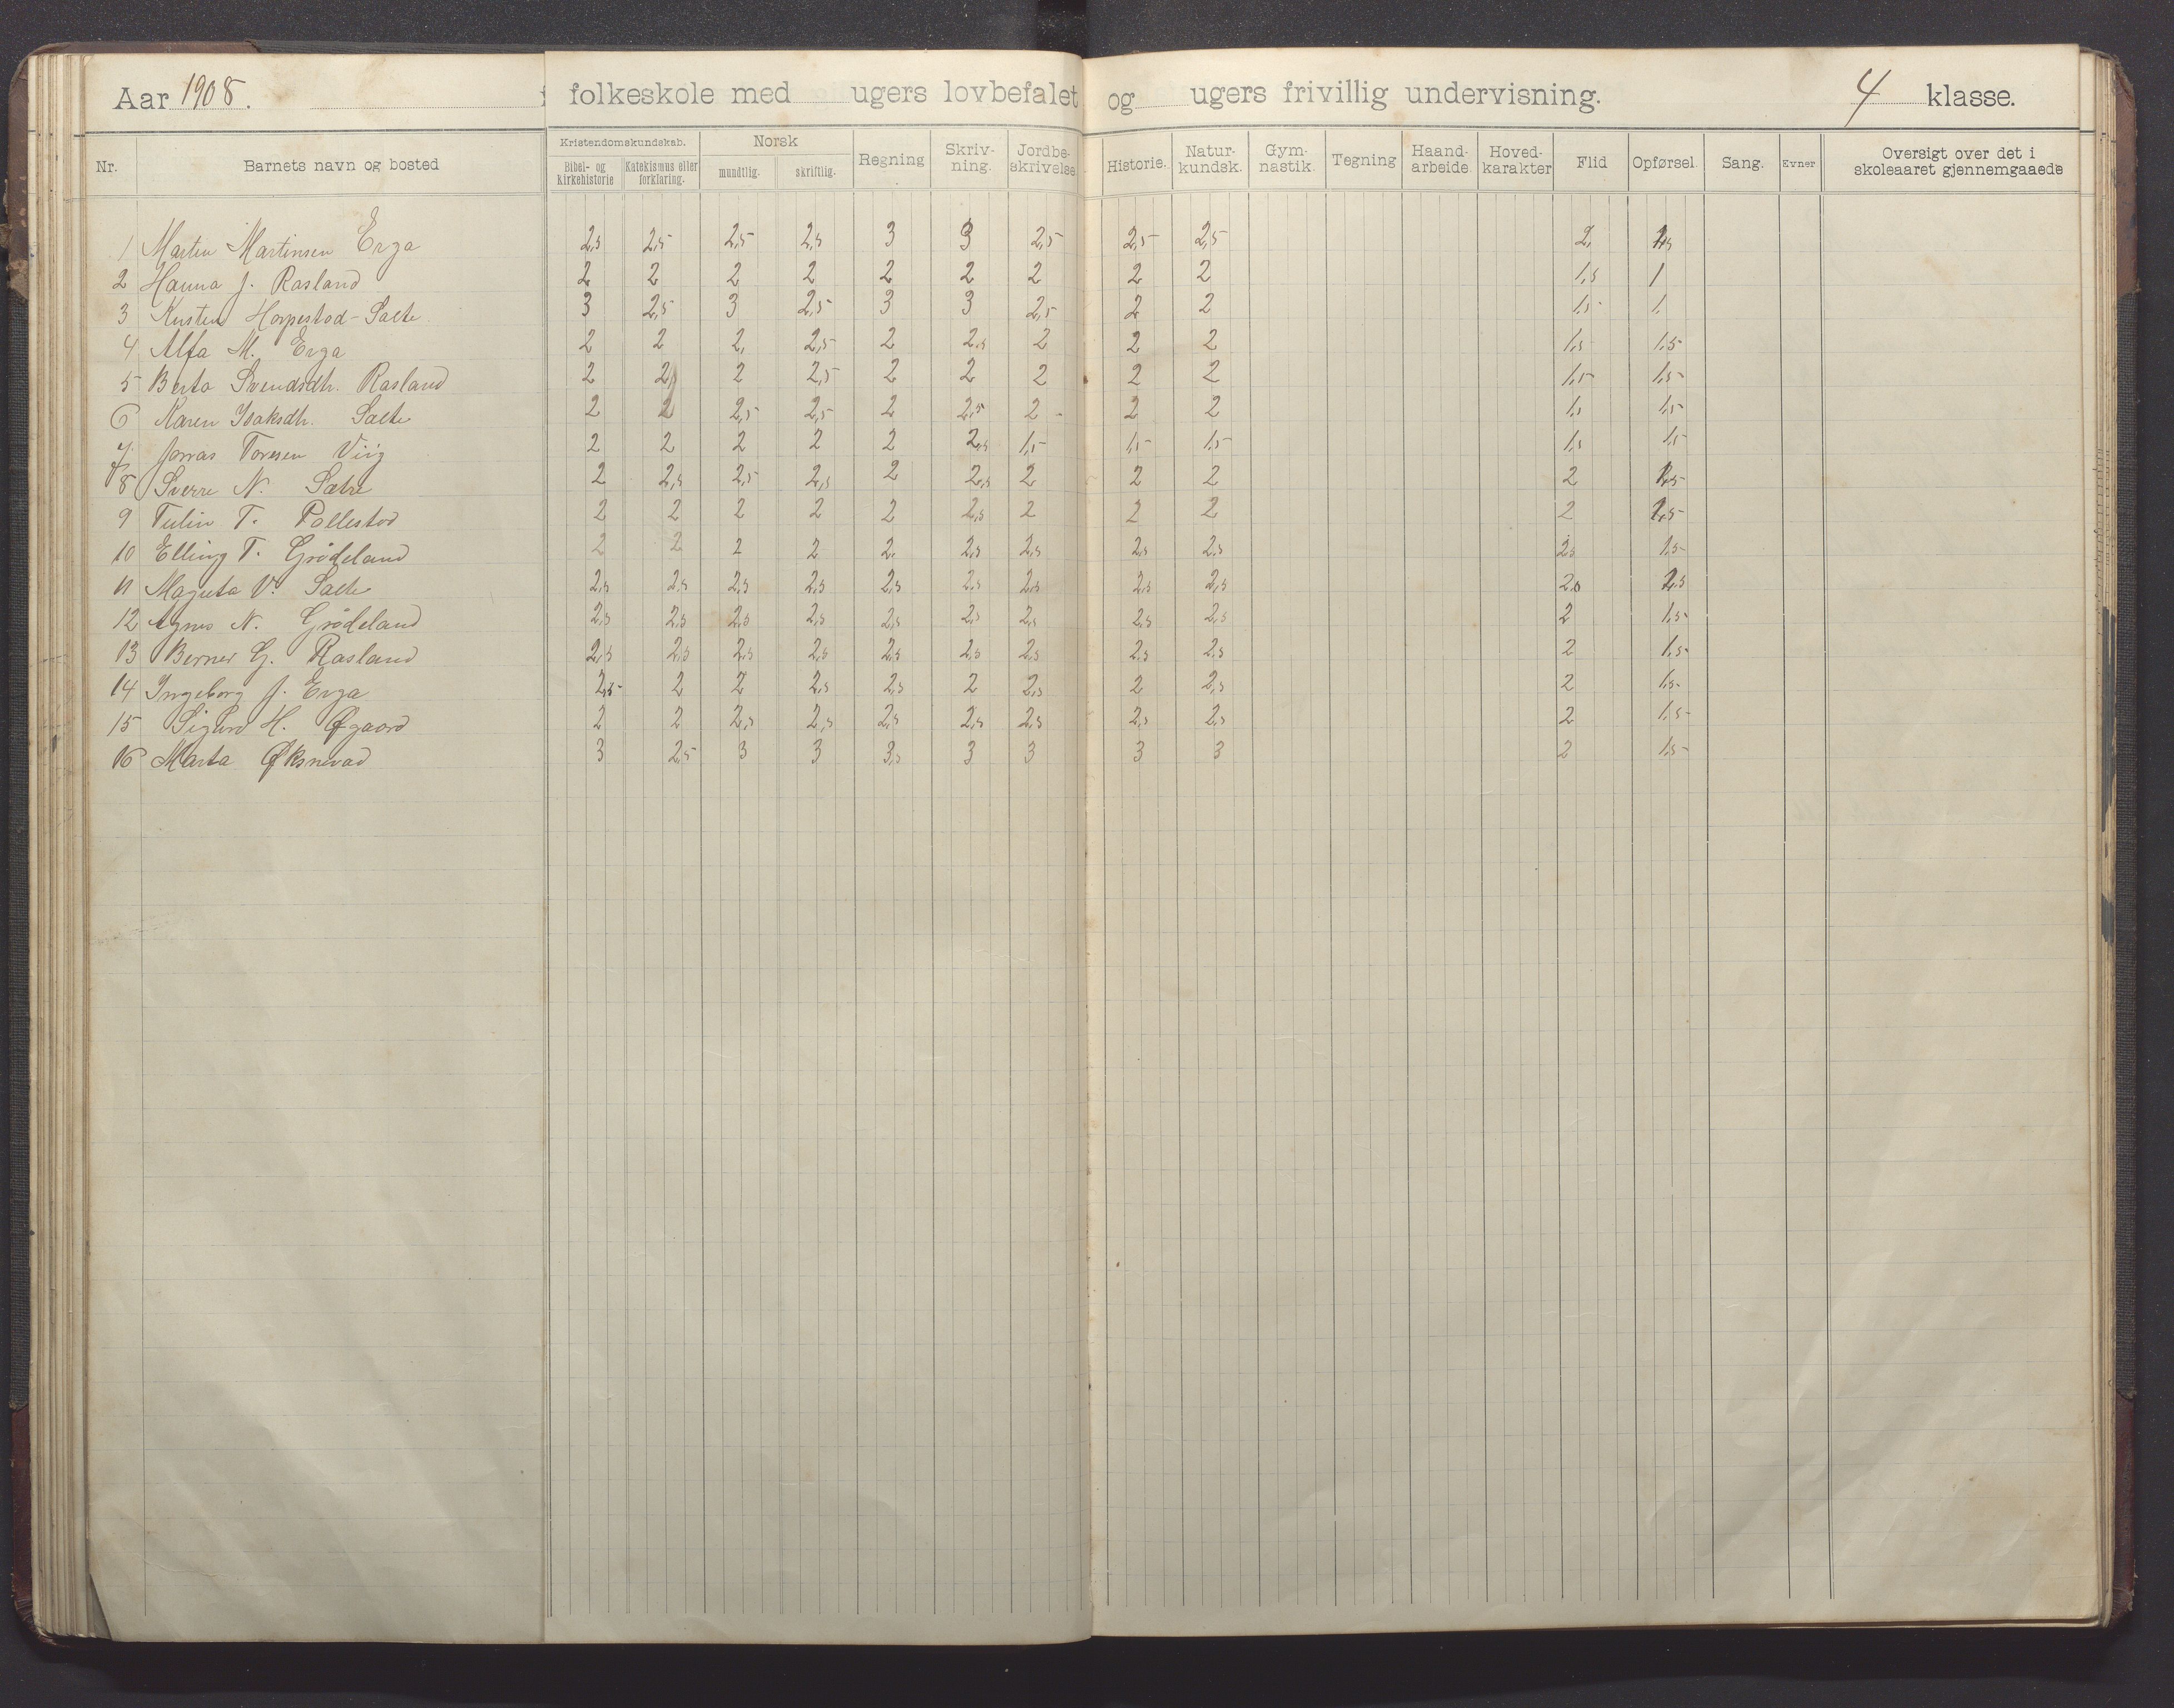 Aar 1908. folkeskole med ugers lovbefalet og ugers frivillig undervisning. 4 klasse.
Nr. Barnets navn og bosted Kristendomskundskab. Bibel- og kirkehistorie Katekismus eller forklaring. Norsk mundtlig. skriftlig. Regning Skriv-ning. Jordbe-skrivelse Historie. Natur-kundsk. Gym-nastik. Tegning Haand-arbeide Hoved-karakter Flid Opførsel. Sang. Evner Oversigt over det i skoleaaret gjennemgaaede
1 Martin Martinsen Erga 2,5 2,5 2,5 2,5 3 3 2,5 2,5 2,5 2,
2 Hanna J. Rasland 2 2 2 2 2 2 2 2 2 1,5 1
3 Kristen Horpestad-Salte 3 2,5 3 2,5 3 3 2,5 2 2 1,5 1,
4 Alfa M. Erga 2 2 2, 2,5 2 2,5 2 2 2 1,5 1,5
5 Berta Svendsdtr. Rasland 2 2, 2 2,5 2 2 2 2 2 1,5 1,5
6 Karen Isaksdtr. Salte 2 2 2,5 2,5 2 2,5 2 2 2 1,5 1,5
7 Jonas Toresen Viig 2 2 2 2 2 2,5 1,5 1,5 1,5 1,5 1,5
8 Sverre N. 2 2,5 2,5 2,5 2 2,5 2 2 2 2 1,5
9 Tulin T. Pollestad 2 2 2 2 2 2,5 2 2 2 2 1,5
10 Elling T. Grødeland 2 2 2 2 2, 2,5 2,5 2,5 2,5 2,5 1,5
11 V. Salte 2,5 2,5 2,5 2,5 2,5 2,5 2,5 2,5 2,5 2,5
12 Agnes N. Grødeland 2,5 2,5 2,5 2,5 2,5 2,5 2,5 2,5 2,5 2 1,5
13 Berner G. Rasland 2,5 2,5 2,5 2,5 2,5 2,5 2,5 2,5 2,5 2 1,5
14 Ingeborg J. Erga 2,5 2 2 2,5 2,5 2 2,5 2 2,5 2 1,5
15 Sigurd H. Øgaard 2 2 2,5 2,5 2,5 2,5 2,5 2,5 2,5 2 1,5
16 Marta Øksnevad 3 2,5 3 3 3,5 3 3 3 3 2 1,5